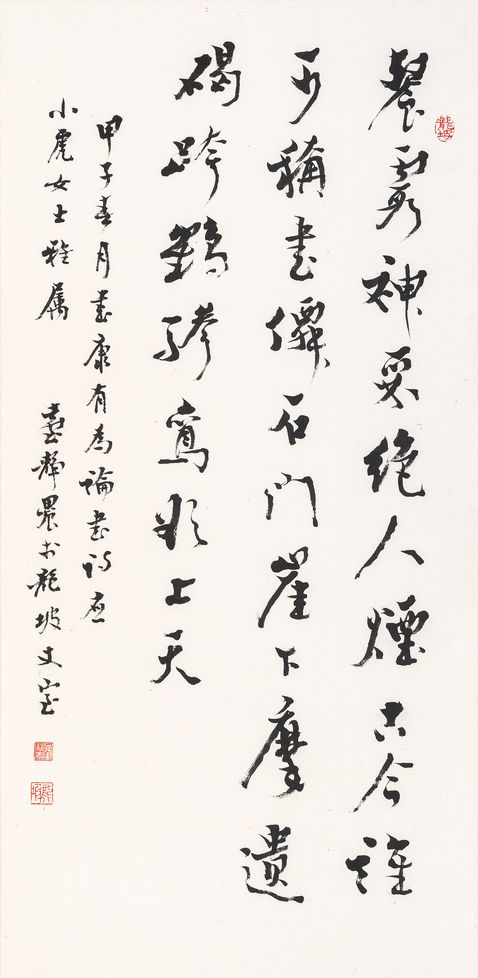 餐霞神采絕人煙古今誰
可稱書僊石門崖下摩遺
碣跨鶴驂鸞欲上天
甲子春月書康有為論書詩應
小虎女士雅屬
臺靜農於龍坡丈室